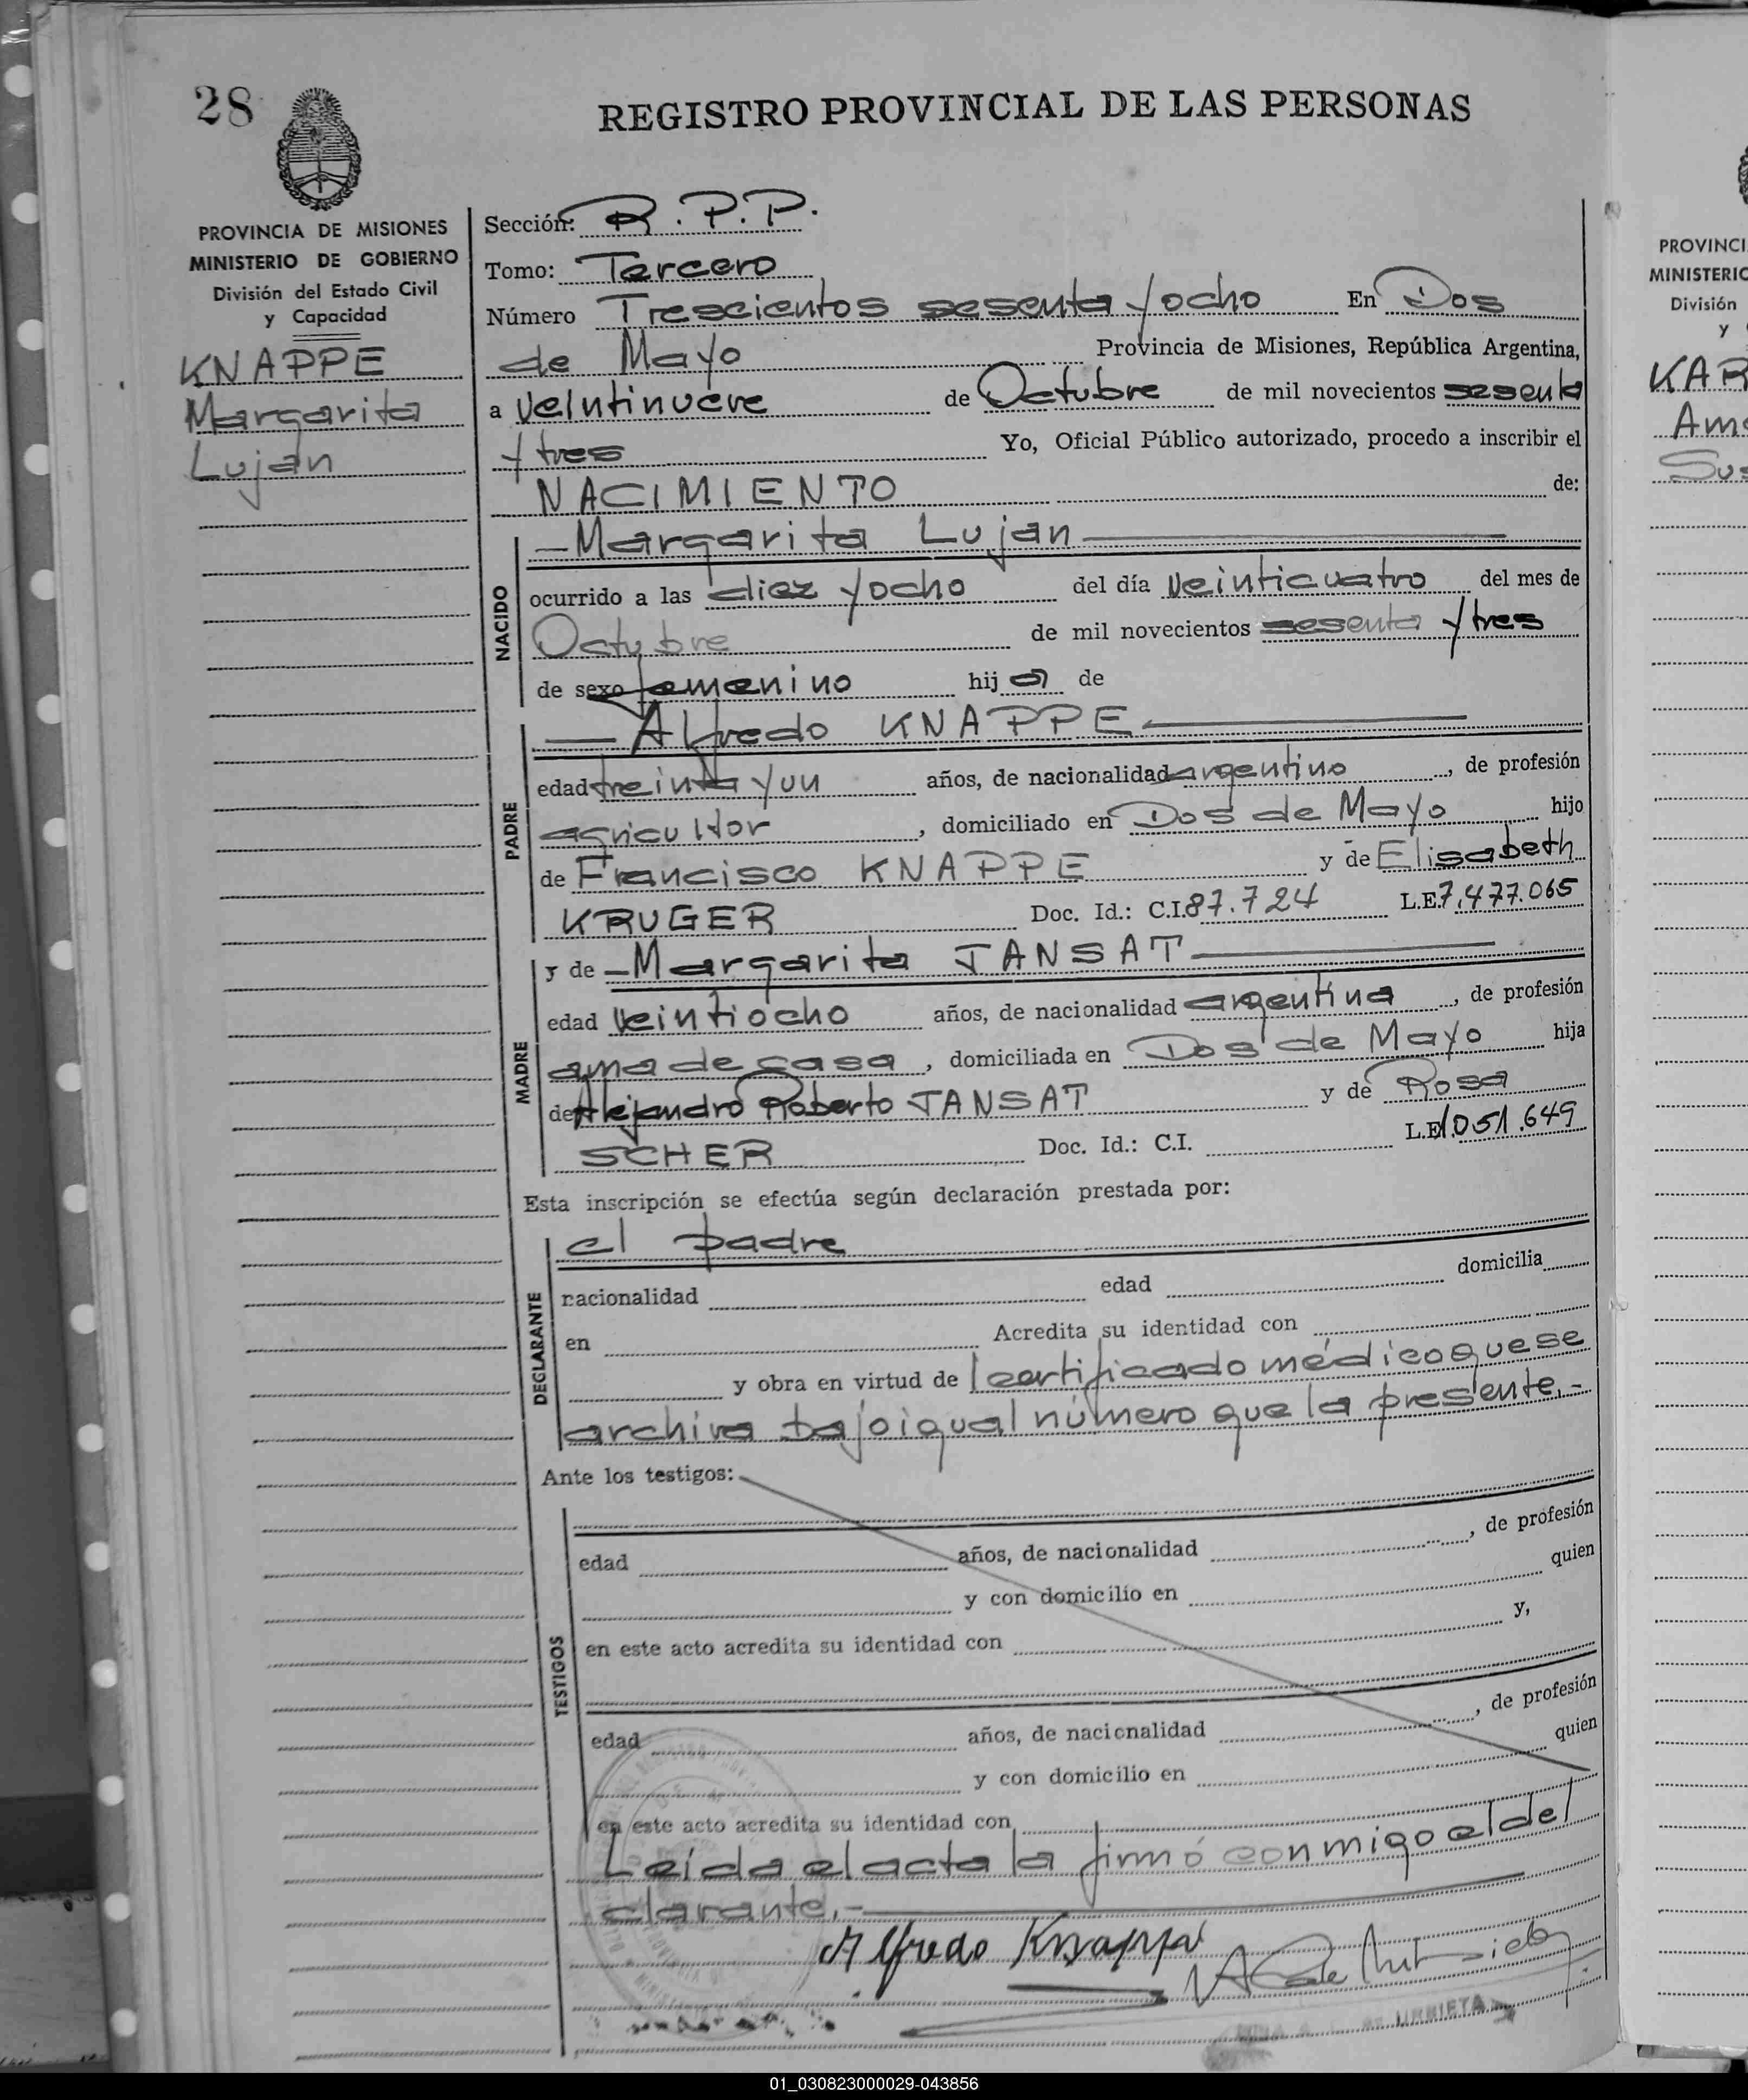 28
REGISTRO PROVINCIAL DE LAS PERSONAS
PROVINCIA DE MISIONES
MINISTERIO DE GOBIERNO
División del Estado Civil
y Capacidad
KNAPPE
Margarita
Lujan
Sección: R.P.P.
Tomo: Tercero
Número Trescientos sesenta y ocho En Dos
de Mayo Provincia de Misiones, República Argentina,
a veintinueve de Octubre de mil novecientos sesenta
y tres Yo, Oficial Público autorizado, procedo a inscribir el
NACIMIENTO de:
NACIDO
—Margarita Lujan
ocurrido a las diez y ocho del día veinticuatro del mes de
Octubre de mil novecientos sesenta y tres
de sexo femenino hija de
PADRE
Alfredo KNAPPE
edad treinta y un años, de nacionalidad argentino, de profesión
agricultor, domiciliado en Dos de Mayo hijo
de Francisco KNAPPE y de Elisabeth
KRUGER Doc. Id.: C.I. 87.724 L.E. 7.477.065
MADRE
y de —Margarita JANSAT
edad veintiocho años, de nacionalidad argentina, de profesión
ama de casa, domiciliada en Dos de Mayo hija
de Alejandro Roberto JANSAT y de Rosa
SCHER Doc. Id.: C.I. L.E. 1.051.649
Esta inscripción se efectúa según declaración prestada por:
DECLARANTE
el padre
nacionalidad edad domicilia
en Acredita su identidad con
y obra en virtud del certificado médico que se
archiva bajo igual número que la presente.-
Ante los testigos:
TESTIGOS
edad años, de nacionalidad , de profesión
y con domicilio en quien
en este acto acredita su identidad con y,
edad años, de nacionalidad , de profesión
y con domicilio en quien
en este acto acredita su identidad con
Leída el acta la firmó conmigo el de
clarante.-
Alfredo Knappe
URRIETA
PROVINCI
MINISTERIO
División
y
KAR
Am
Sus
01_030823000029-043856